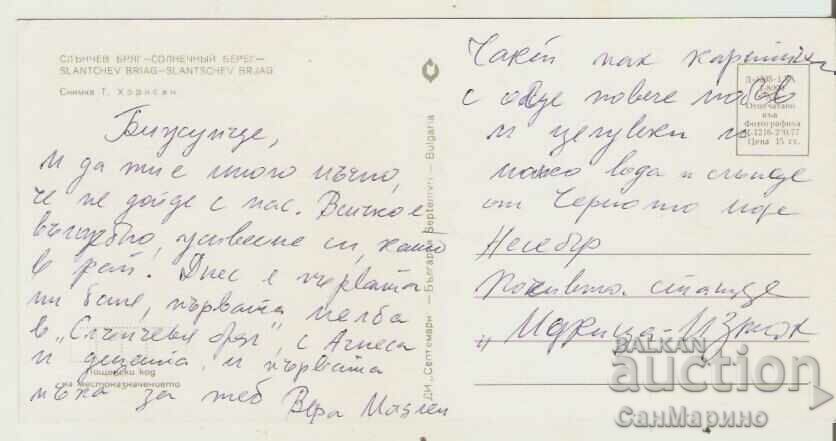 СЛЪНЧЕВ БРЯГ—СОЛНЕЧНЫЙ БЕРЕГ—
SLANTCHEV BRIAG—SLANTSCHEV BRJAG
Снимка Т. Хорисян
Бижунце,
И да ми е много мъчно,
че не дойде с нас. Всичко е
вълшебно, унесени си, като
в рай. Днес е първата
ни баня, първата мелба
в "Слънчевъ бряг", с Агнеса
и децата, и първата
мъка за теб Вера
Пощенски код
на местоназначението
ДИ „Септември" — България Septemvri — Bulgaria
Чакай пак
с още повече любов
и целувки
малко вода и слънце
от Черното море
Несебър
Почивна станция
"Марица-Изток
Отпечатано
във
Фотографика
Цена 15 ст.
BALKAN
auction
СанМарино